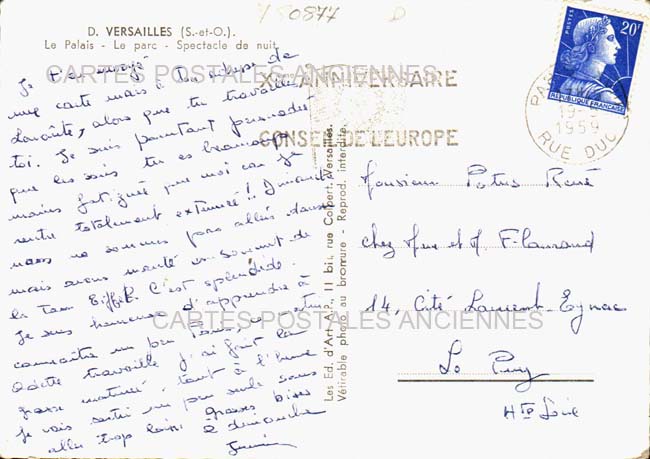 D. VERSAILLES (S.-et-O.).
Le Palais - Le parc - Spectacle de nuit
Y 50877
D
Je t'ai envoyé
une carte mais à
alors que tu travailles
toi. Je suis pourtant persuadée
que les soirs tu es beaucoup
moins fatigué que moi car je
rentre totalement exténuée!! Dimanche
nous ne sommes pas allés danser
mais avons monté au sommet de
la Tour Eiffel. C'est splendide.
Je suis heureuse d'apprendre à
connaître un peu Paris,
Odette travaille j'ai fait la
grasse matinée tout à l'heure
je vais sortir un peu seule sans
aller trop loin. Grosses bises
à dimanche
XE ANNIVERSAIRE
CONSEIL DE L'EUROPE
CARTES POSTALES ANCIENNES
CARTES POSTALES ANCIENNES
Les Ed. d'Art A.P., 11 bis, rue Colbert, Versailles.
Véritable photo au bromure - Reprod. interdite.
POSTES
20F
REPUBLIQUE FRANÇAISE
PARIS
19-
1959
RUE DUC
Monsieur Potus René
chez Mme et M. Flaurand
14, Cité Laurent-Eynac
Le Puy
Hte Loire